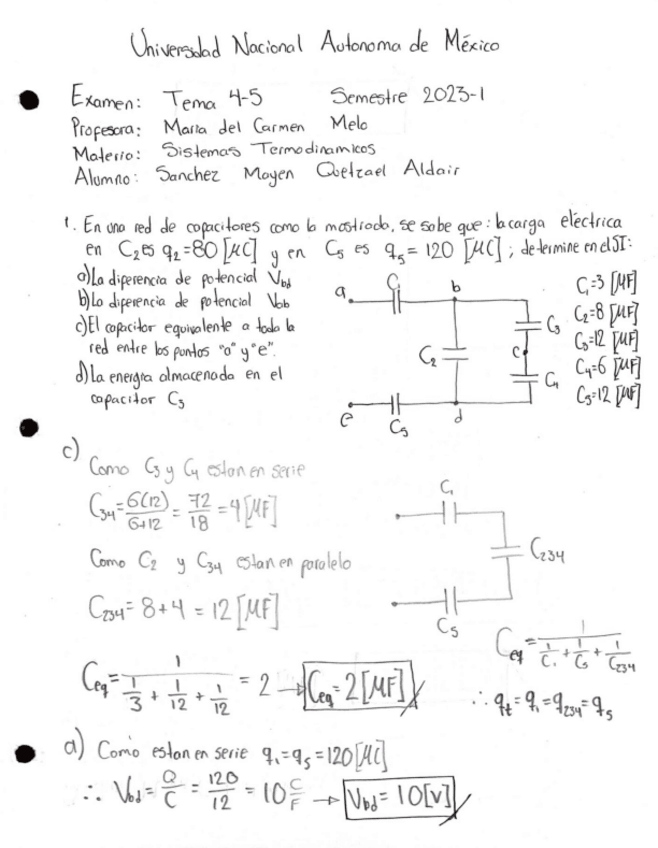 Universidad Nacional Autonoma de México
Examen: Tema 4-5 Semestre 2023-1
Profesora: Maria del Carmen Melo
Materia: Sistemas Termodinamicos
Alumno: Sanchez Mayen Quetzael Aldair
1. En una red de capacitores como la mostrada, se sabe que: la carga eléctrica
en C₂ es q₂=80 [μC] y en C₅ es q₅= 120 [μC]; determine en el SI:
a) La diferencia de potencial Vbd
b) La diferencia de potencial Vab
c) El capacitor equivalente a toda la
red entre los puntos "a" y "e".
d) La energia almacenada en el
capacitor C₃
a C₁ b
C₂ C₃ c C₄
e C₅ d
C₁=3 [μF]
C₂=8 [μF]
C₃=12 [μF]
C₄=6 [μF]
C₅=12 [μF]
c)
Como C₃ y C₄ estan en serie
C₃₄= 6(12)/6+12 = 72/18 = 4 [μF]
Como C₂ y C₃₄ estan en paralelo
C₂₃₄= 8+4 = 12 [μF]
C₁
C₂₃₄
C₅
Ceq= 1/(1/C₁ + 1/C₅ + 1/C₂₃₄)
Ceq= 1/(1/3 + 1/12 + 1/12) = 2 → Ceq= 2 [μF]
∴ qt = q₁ = q₂₃₄ = q₅
a) Como estan en serie q₁=q₅=120 [μC]
∴ Vbd= Q/C = 120/12 = 10 C/F → Vbd= 10 [V]